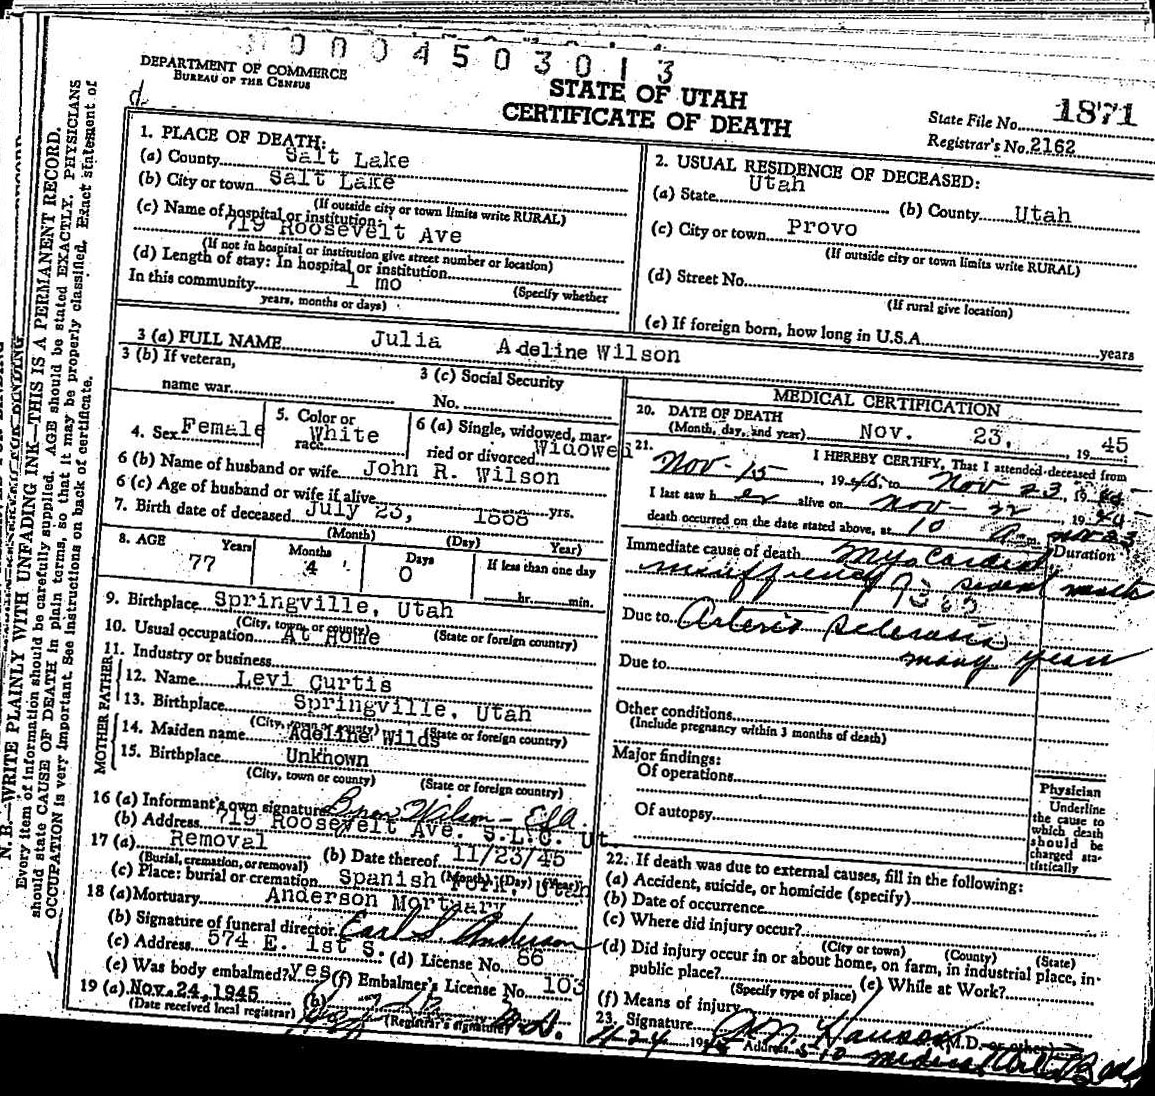 0004503013
DEPARTMENT OF COMMERCE
BUREAU OF THE CENSUS
STATE OF UTAH
CERTIFICATE OF DEATH
State File No. 1871
Registrar's No. 2162
1. PLACE OF DEATH:
(a) County Salt Lake
(b) City or town Salt Lake
(If outside city or town limits write RURAL)
(c) Name of hospital or institution:
719 Roosevelt Ave
(If not in hospital or institution give street number or location)
(d) Length of stay: In hospital or institution
In this community 1 mo (Specify whether
years, months or days)
2. USUAL RESIDENCE OF DECEASED:
(a) State Utah (b) County Utah
(c) City or town Provo
(If outside city or town limits write RURAL)
(d) Street No.
(If rural give location)
(e) If foreign born, how long in U.S.A. years
3 (a) FULL NAME Julia Adeline Wilson
3 (b) If veteran,
name war
3 (c) Social Security
No.
4. Sex Female
5. Color or
race White
6 (a) Single, widowed, mar-
ried or divorced Widowed
6 (b) Name of husband or wife John R. Wilson
6 (c) Age of husband or wife if alive yrs.
7. Birth date of deceased July 23, 1868
(Month) (Day) Year)
8. AGE Years Months Days If less than one day
77 4 0 hr. min.
9. Birthplace Springville, Utah
(City, town, or county) (State or foreign country)
10. Usual occupation At Home
11. Industry or business
FATHER
12. Name Levi Curtis
13. Birthplace Springville, Utah
(City, town or county) (State or foreign country)
MOTHER
14. Maiden name Adeline Wilds
15. Birthplace Unknown
(City, town or county) (State or foreign country)
16 (a) Informant's own signature Wilson
(b) Address 719 Roosevelt Ave. S.L.C. Ut
17 (a) Removal (b) Date thereof 11/23/45
(Burial, cremation, or removal) (Month) (Day) (Year)
(c) Place: burial or cremation Spanish Fork, Utah
18 (a) Mortuary Anderson Mortuary
(b) Signature of funeral director Earl S Anderson
(c) Address 574 E. 1st S. (d) License No. 86
(e) Was body embalmed? yes (f) Embalmer's License No. 103
19 (a) Nov. 24, 1945 (b)
(Date received local registrar) (Registrar's signature)
MEDICAL CERTIFICATION
20. DATE OF DEATH
(Month, day, and year) Nov. 23, 19 45
21. I HEREBY CERTIFY, That I attended deceased from
Nov-15, 1945 to Nov 23, 19
I last saw her alive on Nov-22 19
death occurred on the date stated above, at 10 m. Nov 23
Immediate cause of death Myocardial Duration
insufficiency several months
Due to Arterio sclerosis
many years
Due to
Other conditions
(Include pregnancy within 3 months of death)
Major findings:
Of operations
Of autopsy
Physician
Underline
the cause to
which death
should be
charged sta-
tistically
22. If death was due to external causes, fill in the following:
(a) Accident, suicide, or homicide (specify)
(b) Date of occurrence
(c) Where did injury occur?
(City or town) (County) (State)
(d) Did injury occur in or about home, on farm, in industrial place, in-
public place? (e) While at Work?
(Specify type of place)
(f) Means of injury
23. Signature Hanson (M.D. or other)
Address 510 Medical Arts Bldg
N. B.—WRITE PLAINLY WITH UNFADING INK—THIS IS A PERMANENT RECORD.
Every item of information should be carefully supplied. AGE should be stated EXACTLY. PHYSICIANS
should state CAUSE OF DEATH in plain terms, so that it may be properly classified. Exact statement of
OCCUPATION is very important. See instructions on back of certificate.